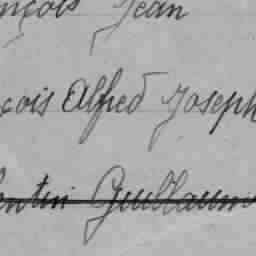 nçois Jean
çois Alfred Joseph
entin Guillaum